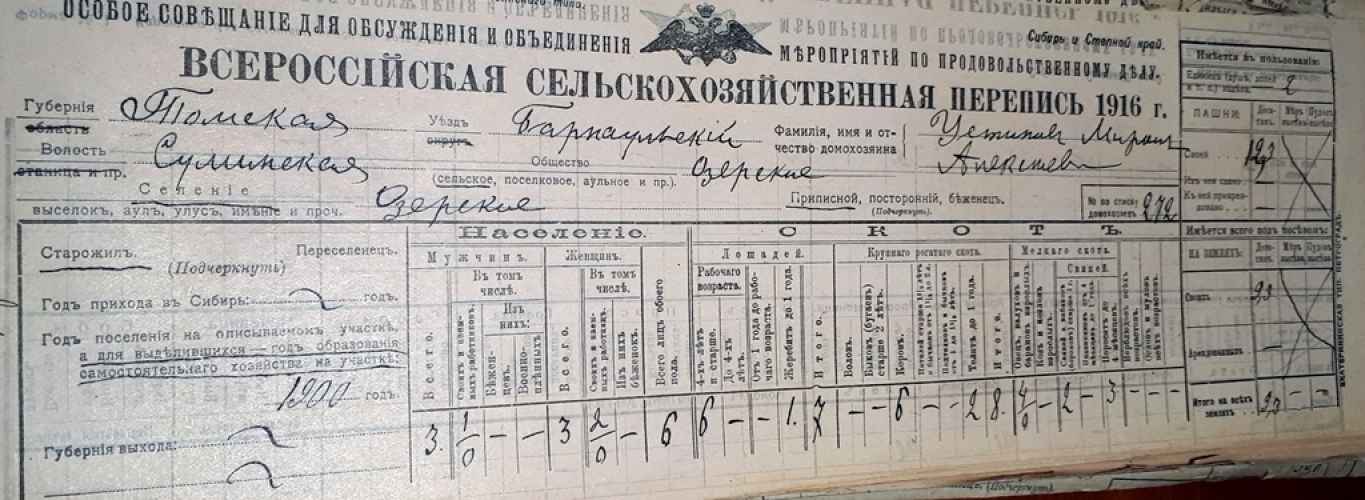 ОСОБОЕ СОВѢЩАНІЕ ДЛЯ ОБСУЖДЕНІЯ И ОБЪЕДИНЕНІЯ
МѢРОПРІЯТІЙ ПО ПРОДОВОЛЬСТВЕННОМУ ДѢЛУ.
Сибирь и Степной край.
ВСЕРОССІЙСКАЯ СЕЛЬСКОХОЗЯЙСТВЕННАЯ ПЕРЕПИСЬ 1916 г.
Губернія Томская Уѣздъ Барнаульскій Фамилія, имя и от-
область округъ чество домохозяина Устинов Мирон
Волость Сулинская Общество Озерское Алексѣев
станица и пр. (сельское, поселковое, аульное и пр.)
Селеніе Озерское Приписной, посторонній, бѣженецъ. № по списку 272
выселокъ, аулъ, улусъ, имѣніе и проч. (Подчеркнуть). домохозяевъ
Старожилъ. Переселенецъ.
(Подчеркнуть)
Годъ прихода въ Сибирь: годъ.
Годъ поселенія на описываемомъ участкѣ,
а для выдѣлившихся—годъ образованія
самостоятельнаго хозяйства на участкѣ:
1900 годъ.
Губернія выхода:
Населеніе.
Мужчинъ. Женщинъ.
Всего.
Въ томъ числѣ.
Своихъ и наем-
ныхъ работниковъ.
Изъ нихъ:
Бѣжен-
цевъ.
Военно-
плѣнныхъ
Всего.
Въ томъ числѣ.
Своихъ и наем-
ныхъ работниковъ.
Изъ нихъ
бѣженокъ.
Всего лицъ обоего
пола.
СКОТЪ.
Лошадей.
Рабочаго
возраста.
4-хъ лѣтъ
и старше.
До 4-хъ
лѣтъ.
Отъ 1 года до рабо-
чаго возраста.
Жеребятъ до 1 года.
Итого.
Крупнаго рогатаго скота.
Воловъ.
Быковъ (бугаевъ)
старше 2 лѣтъ.
Коровъ.
Телятъ до 1 года.
Итого.
Мелкаго скота.
Свиней.
3. 1/0 — — 3 2/0 — 6 6 — — 1. 7 — — 6 — — 2 8. 4/0 — 2 — 3 — — —
Имѣется въ пользованіи
2
ПАШНИ:
Деся-
тинъ.
Своей 12
Изъ нея сдано —
—
Имѣется всего подъ посѣвомъ:
НА ЗЕМЛѢ:
Деся-
тинъ.
Своей 23
Арендованной —
Итого на всѣхъ
земляхъ 23 — —